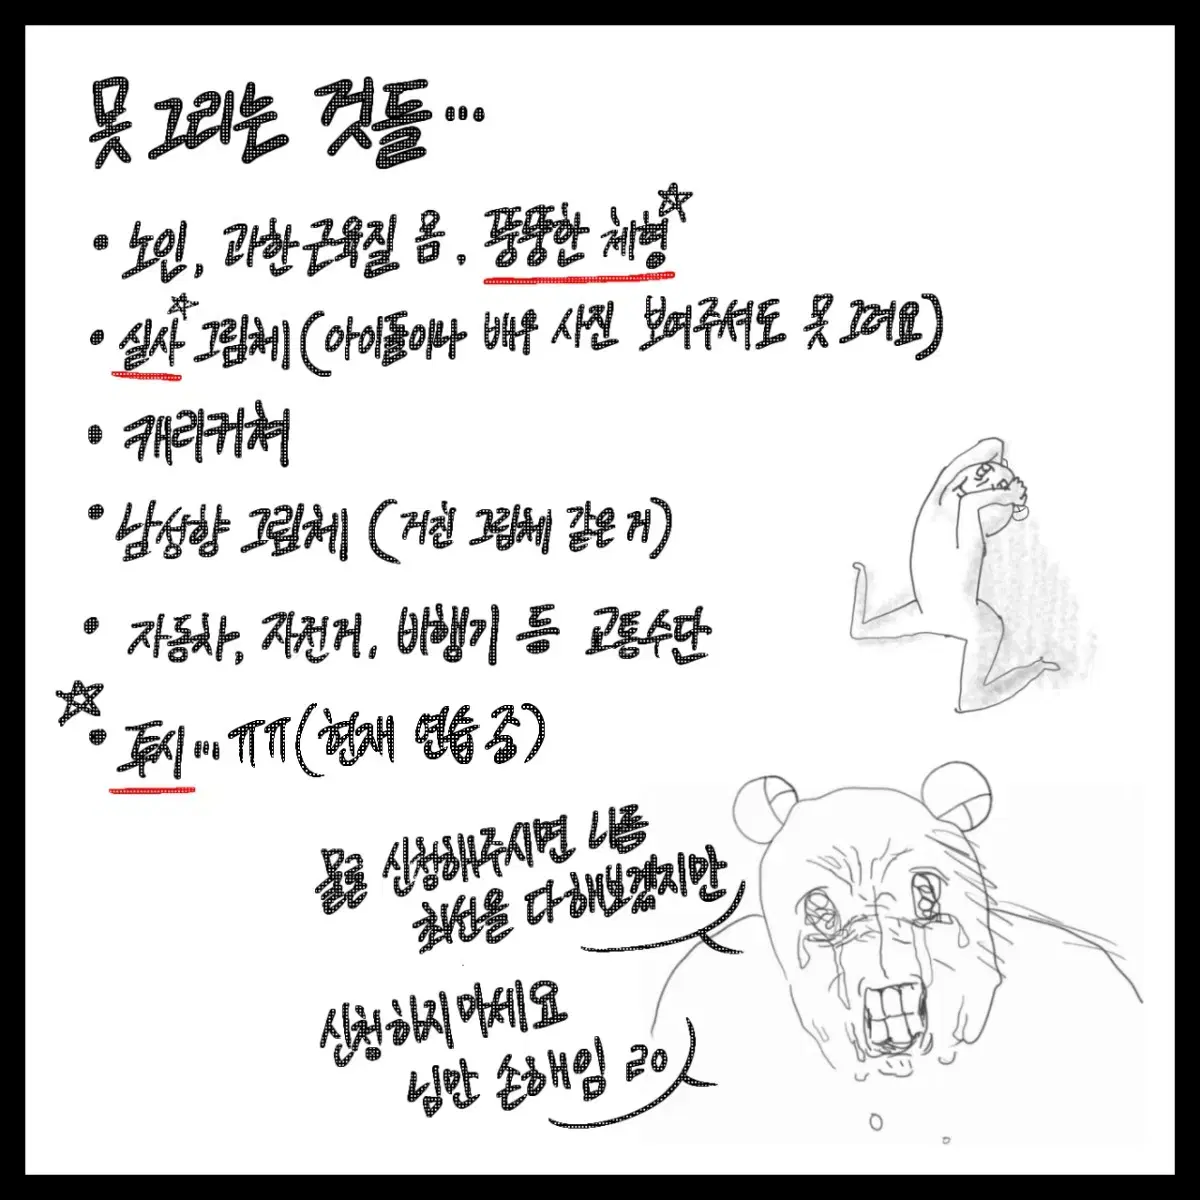 못 그리는 것들...
• 노인, 과한 근육질 몸, 뚱뚱한 체형☆
• 실사☆ 그림체 (아이돌이나 배우 사진 보여주셔도 못 그려요)
• 캐리커쳐
• 남성향 그림체 (거친 그림체 같은 거)
• 자동차, 자전거, 비행기 등 교통수단
☆• 투시... ㅠㅠ (현재 연습 중)
물론 신청해주시면 나름
최선을 다해보겠지만
신청하지 마세요
님만 손해임 ㄹㅇ